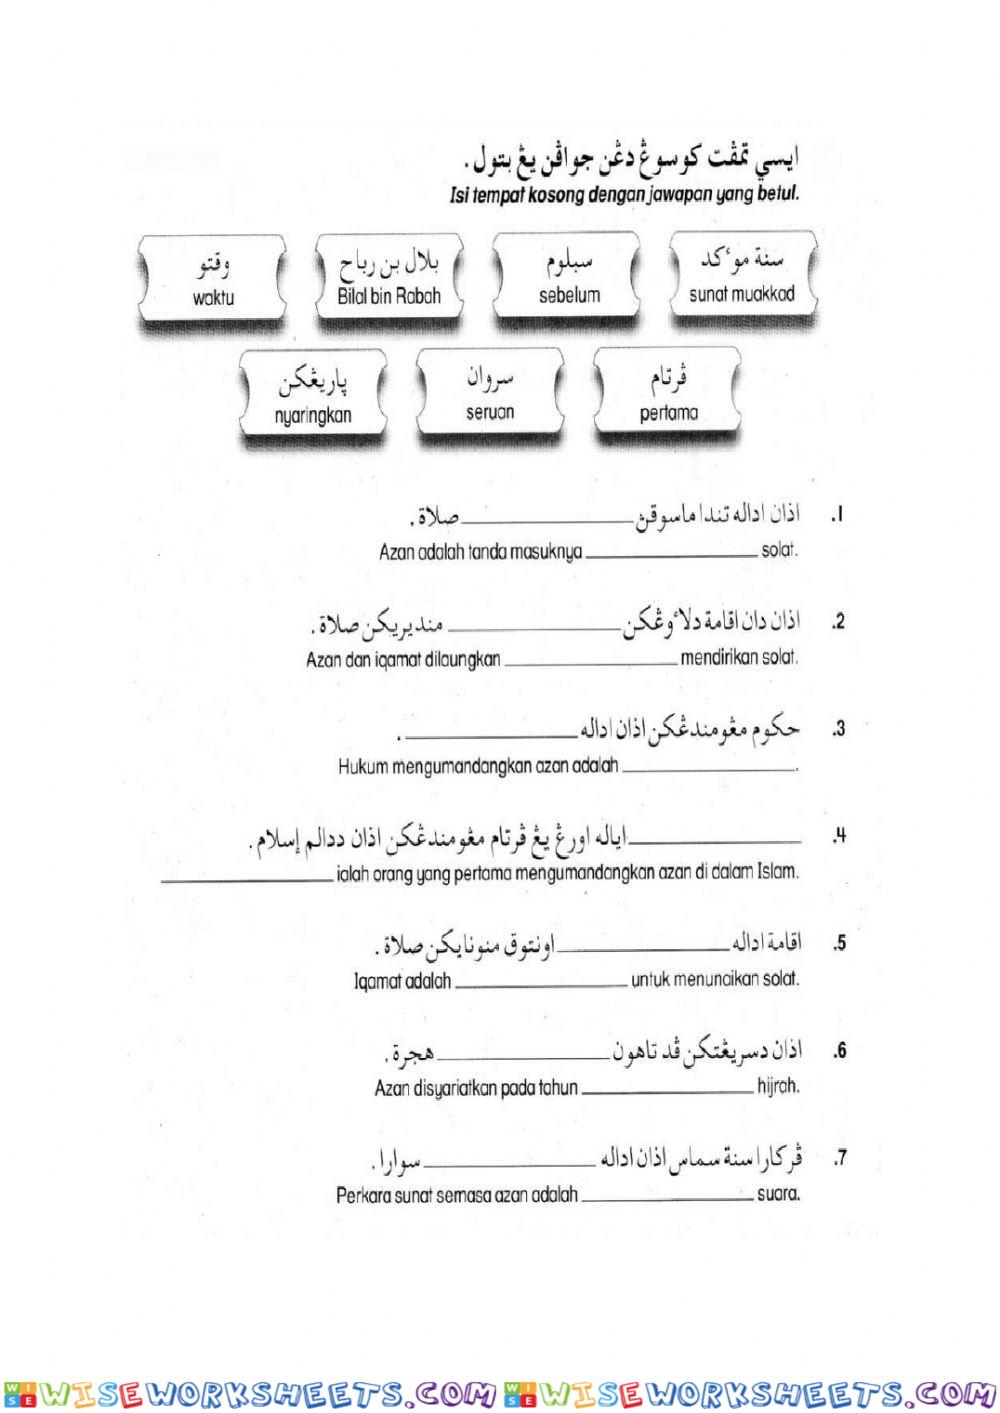 ايسي تمڤت كوسوڠ دڠن جواڤن يڠ بتول.
Isi tempat kosong dengan jawapan yang betul.
سنة موٴكد
sunat muakkad
سبلوم
sebelum
بلال بن رباح
Bilal bin Rabah
وقتو
waktu
ڤرتام
pertama
سروان
seruan
ڽاريڠكن
nyaringkan
1. اذان اداله تندا ماسوقڽ ____________ صلاة.
Azan adalah tanda masuknya ____________ solat.
2. اذان دان اقامة دلاٴوڠكن ____________ منديريكن صلاة.
Azan dan iqamat dilaungkan ____________ mendirikan solat.
3. حكوم مڠومندڠكن اذان اداله ____________.
Hukum mengumandangkan azan adalah ____________.
4. ____________ اياله اورڠ يڠ ڤرتام مڠومندڠكن اذان ددالم إسلام.
____________ ialah orang yang pertama mengumandangkan azan di dalam Islam.
5. اقامة اداله ____________ اونتوق منونايكن صلاة.
Iqamat adalah ____________ untuk menunaikan solat.
6. اذان دسريعتكن ڤد تاهون ____________ هجرة.
Azan disyariatkan pada tahun ____________ hijrah.
7. ڤركارا سنة سماس اذان اداله ____________ سوارا.
Perkara sunat semasa azan adalah ____________ suara.
WISEWORKSHEETS.COM WISEWORKSHEETS.COM